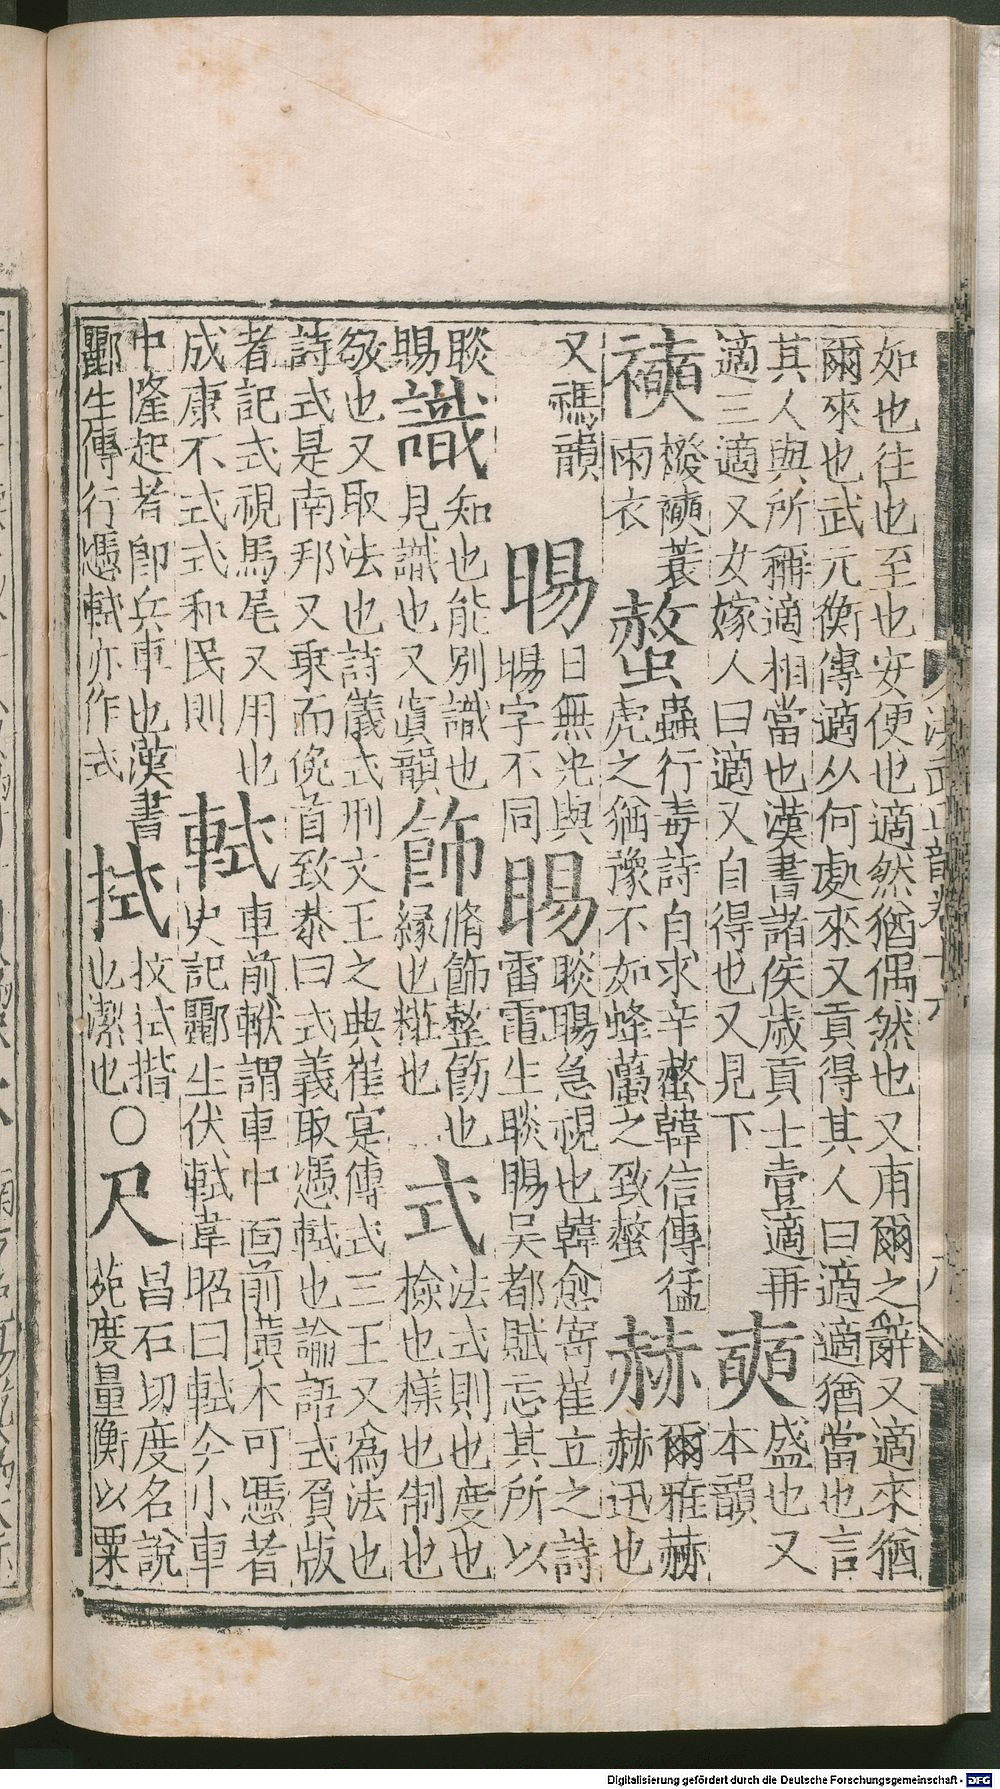 洪武正韻卷十六 八
如也往也至也安便也適然猶偶然也又甫爾之辭又適來猶
爾來也武元衡傳適从何處來又貢得其人曰適適猶當也言
其人與所稱適相當也漢書諸侯歲貢士壹適再
適三適又女嫁人曰適又自得也又見下
奭
盛也又
本韻
襫
襏襫蓑
雨衣
螫
蟲行毒詩自求辛螫韓信傳猛
虎之猶豫不如蜂蠆之致螫
赫
爾雅赫
赫迅也
又禡韻
晹
日無光與
睗字不同
睗
睒睗急視也韓愈寄崔立之詩
雷電生睒睗吳都賦忘其所以
睒
睗
識
知也能別識也
見識也又寘韻
飾
脩飾整飭也
緣也糚也
式
法式則也度也
撿也樣也制也
敬也又取法也詩儀式刑文王之典崔寔傳式三王又為法也
詩式是南邦又乘而俛首致恭曰式義取憑軾也論語式負版
者記式視馬尾又用也
成康不式式和民則
軾
車前軾謂車中靣前橫木可憑者
史記酈生伏軾韋昭曰軾今小車
中隆起者卽兵車也漢書
酈生傳行憑軾亦作式
拭
抆拭揩
也潔也
○
尺
昌石切度名說
苑度量衡以粟
Digitalisierung gefördert durch die Deutsche Forschungsgemeinschaft - DFG